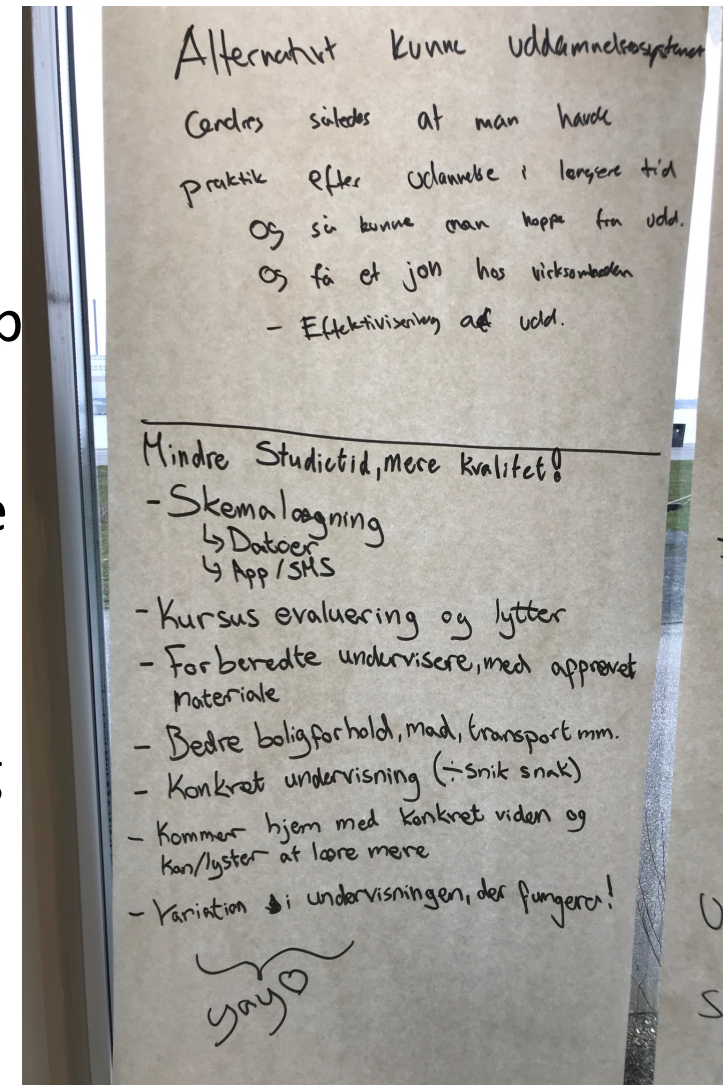 Alternativt kunne uddannelsessystemet
Ændres således at man havde
praktik efter udannelse i længere tid
og så kunne man hoppe fra udd.
og få et job hos virksomheden
- Effektivisering af udd.
Mindre Studietid, mere kvalitet!
- Skemalægning
↳ Datoer
↳ App/SMS
- Kursus evaluering og lytter
- Forberedte undervisere, med apprøvet
materiale
- Bedre boligforhold, mad, transport mm.
- Konkret undervisning (÷snik snak)
- Kommer hjem med konkret viden og
kan/lyster at lære mere
- Variation i undervisningen, der fungerer!
yay♡